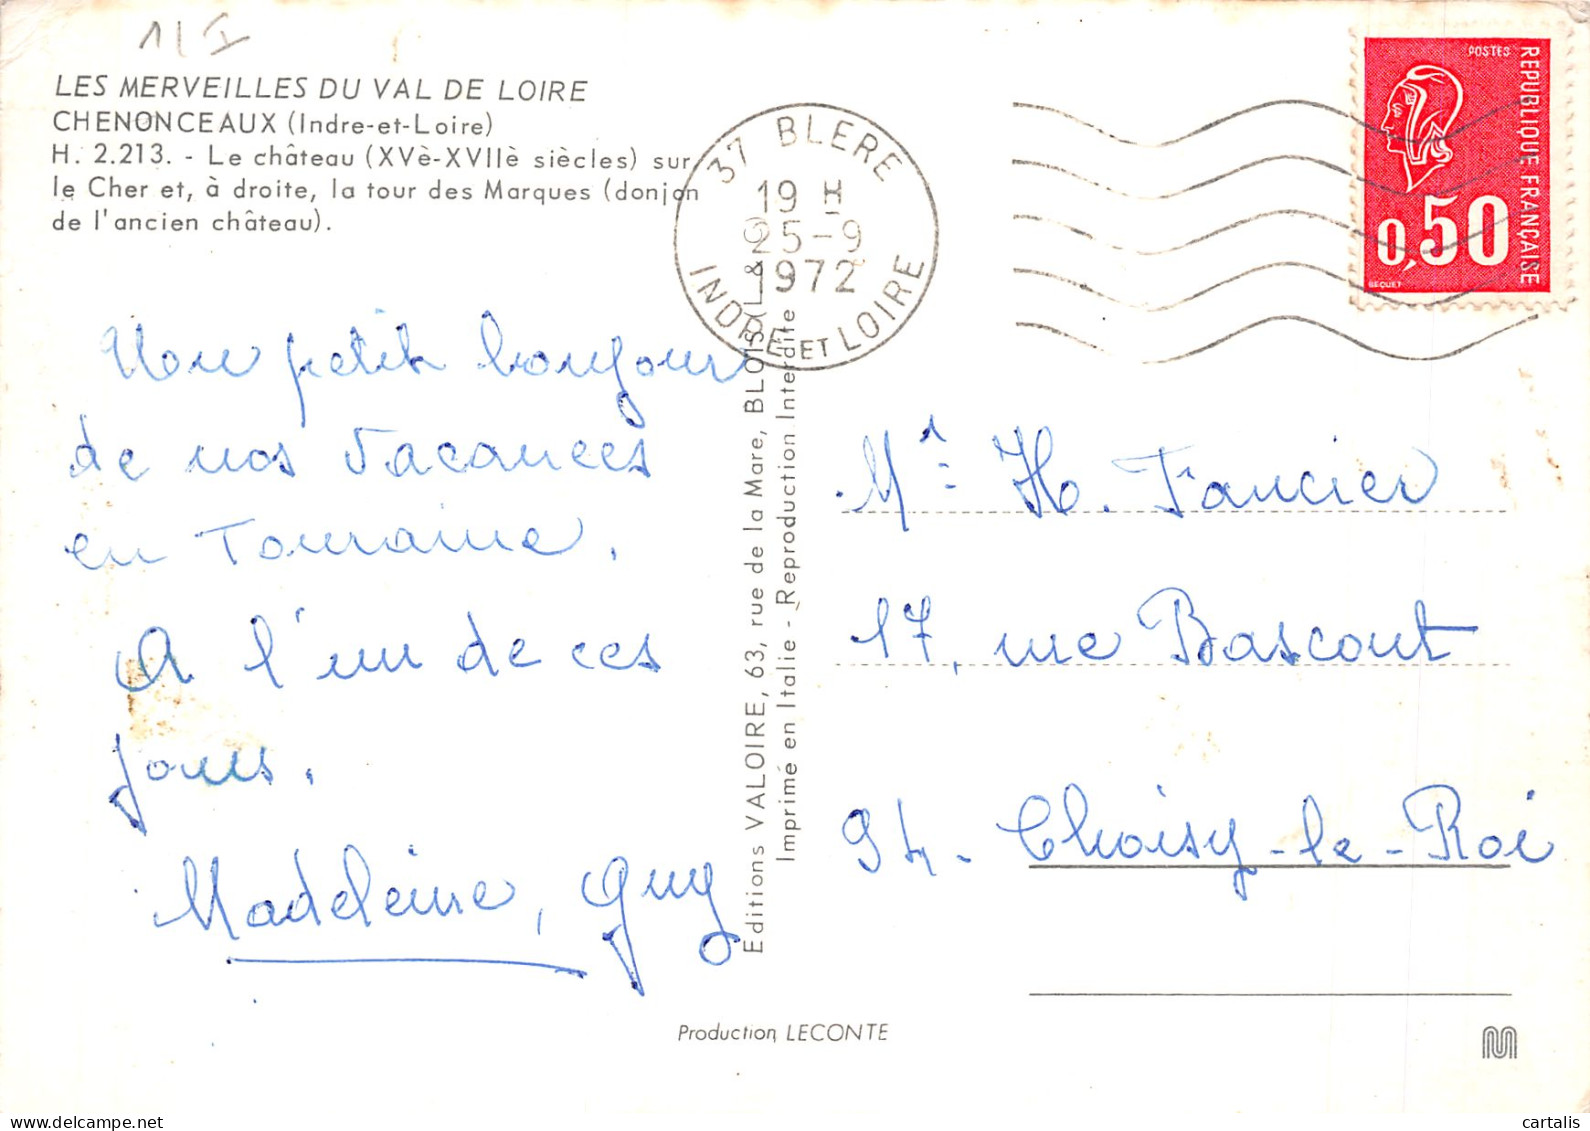 1/I
LES MERVEILLES DU VAL DE LOIRE
CHENONCEAUX (Indre-et-Loire)
H. 2.213. - Le château (XVè-XVIIè siècles) sur
le Cher et, à droite, la tour des Marques (donjon
de l'ancien château).
Un petit bonjour
de nos vacances
en Touraine.
A l'un de ces
jours.
Madeleine, Guy
Editions VALOIRE, 63, rue de la Mare, BLOIS (L & C)
Imprimé en Italie - Reproduction Interdite
37 BLERE
19 H
25-9
1972
INDRE ET LOIRE
POSTES
REPUBLIQUE FRANÇAISE
0,50
BEQUET
Mr H. Faucier
17, rue Bascout
94 - Choisy-le-Roi
Production LECONTE
cartalis
https://www.delcampe.net